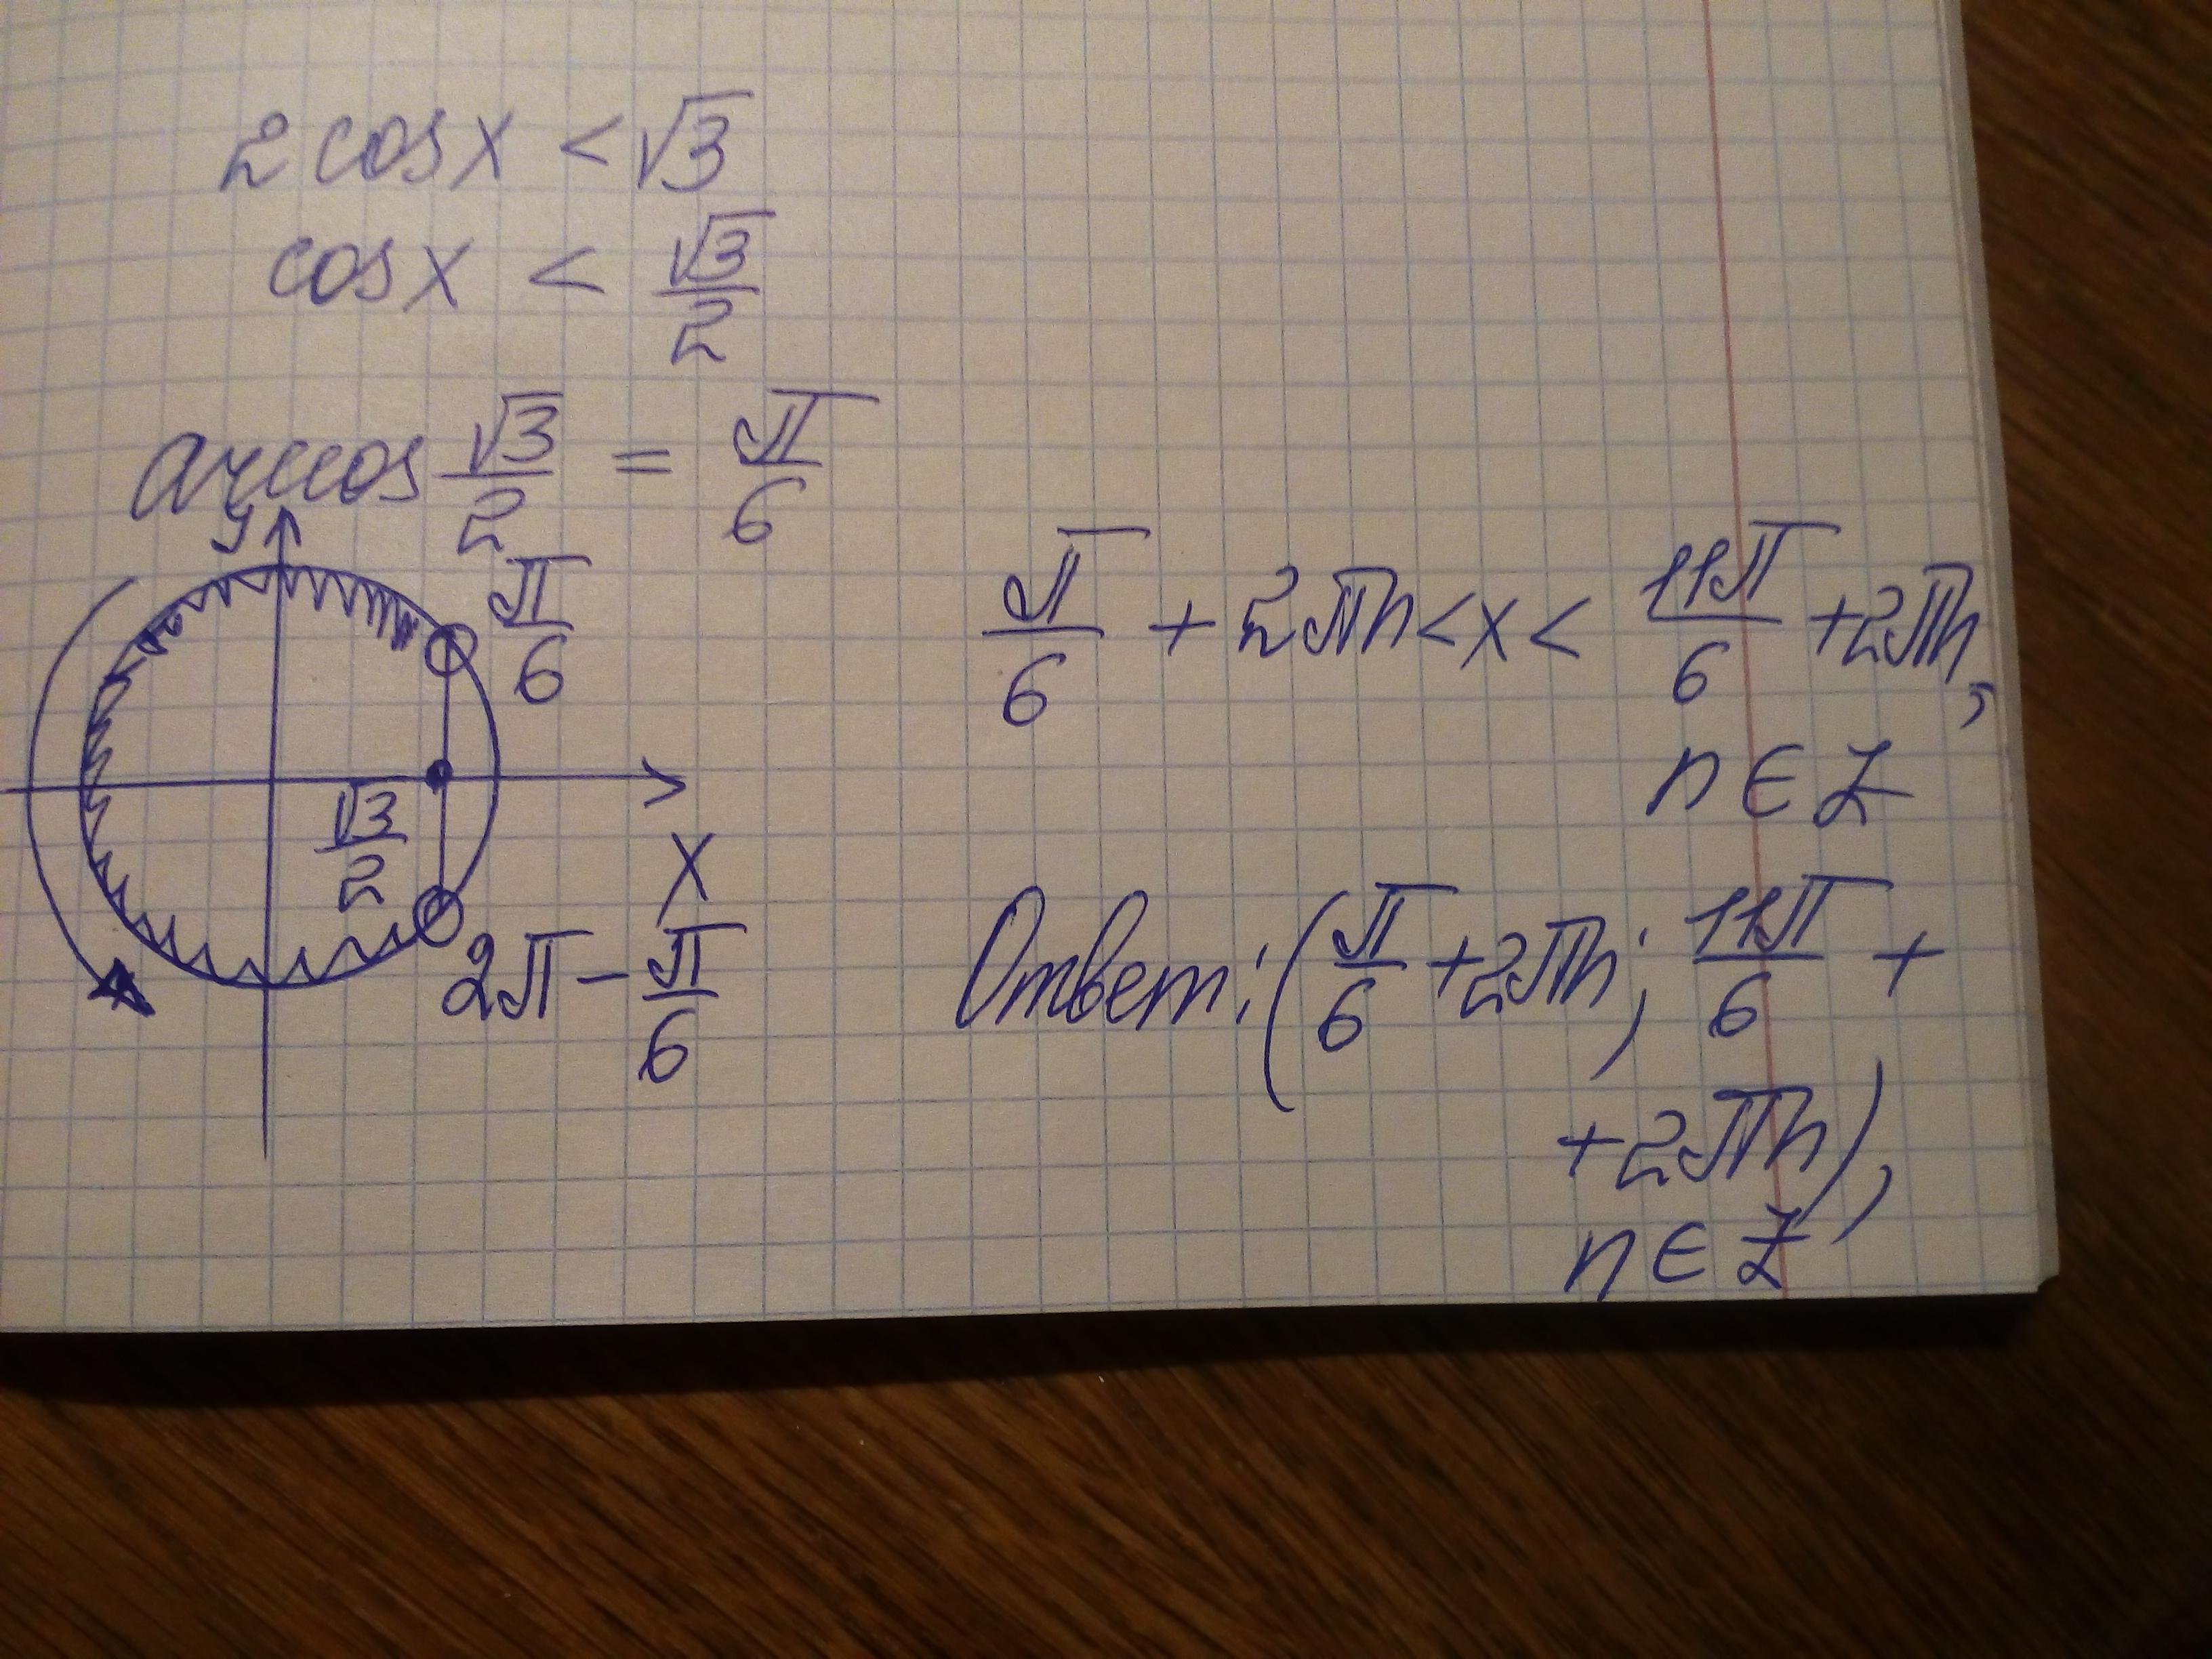 2 cos x < √3
cos x < √3/2
arccos √3/2 = π/6
y
π/6
√3/2
x
2π - π/6
π/6 + 2πn < x < 11π/6 + 2πn,
n ∈ Z
Ответ: (π/6 + 2πn; 11π/6 +
+ 2πn),
n ∈ Z